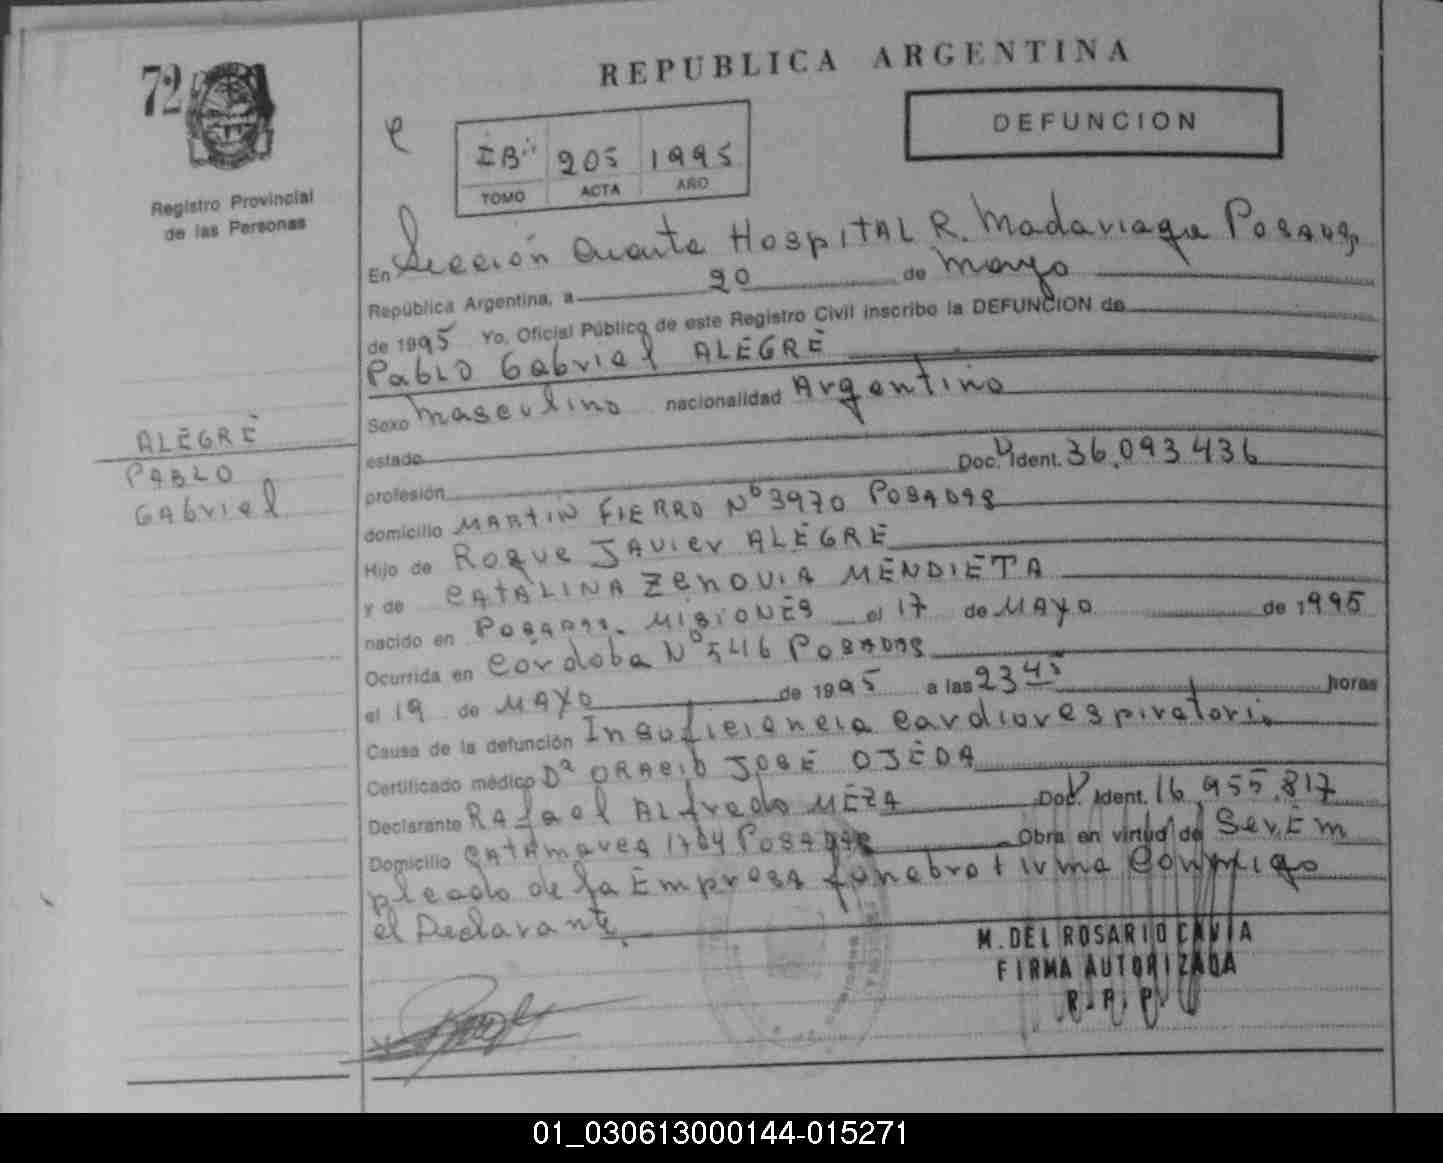 72
REPUBLICA ARGENTINA
DEFUNCION
Registro Provincial
de las Personas
205 1995
TOMO ACTA AÑO
En Sección Cuarta HospITAL R. Madariaga Posadas,
República Argentina, a 20 de mayo
de 1995 Yo, Oficial Público de este Registro Civil inscribo la DEFUNCION de
PabLO Gabriel ALEGRE
Sexo masculino nacionalidad Argentino
ALEGRE
PABLO
Gabriel
estado
profesión Doc. Ident. 36.093.436
domicilio MARTIN FIERRO Nº 3970 POSADAS
Hijo de Roque JAVIer ALEGRE
y de CATALINA ZENOVIA MENDIETA
nacido en POSADAS. MISIONES el 17 de MAYO de 1995
Ocurrida en Córdoba Nº 546 POSADAS
el 19 de MAYO de 1995 a las 23 45 horas
Causa de la defunción Insuficiencia cardiorespiratoria
Certificado médico Dº ORACIO JOSE OJEDA
Declarante RAfael ALfredo MEZA Doc. Ident. 16.955.817
Domicilio CATAmarca 1764 POSADAS Obra en virtud de Ser Em
pleado de la Empresa funebre firma Conmigo
el Declarante.
M. DEL ROSARIO CAVIA
FIRMA AUTORIZADA
R. P. P.
01_030613000144-015271